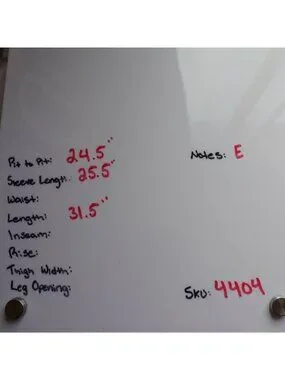 Pit to Pit: 24.5"
Sleeve Length: 25.5"
Waist:
Length: 31.5"
Inseam:
Rise:
Thigh Width:
Leg Opening:
Notes: E
SKU: 4404